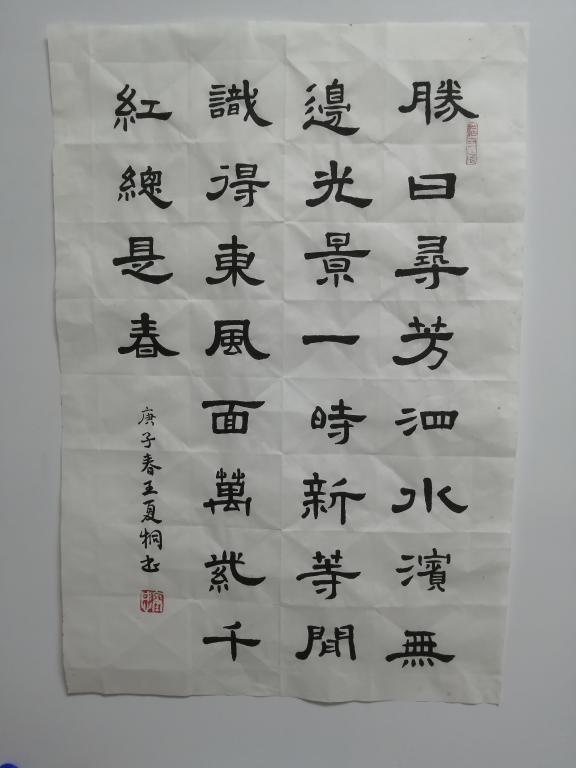 勝日尋芳泗水濱無
邊光景一時新等閒
識得東風面萬紫千
紅總是春
庚子春王夏桐书